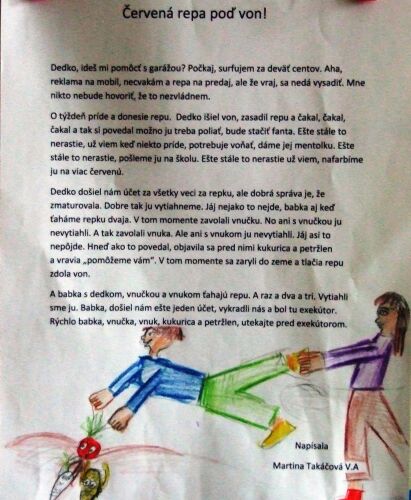 Červená repa poď von!
Dedko, ideš mi pomôcť s garážou? Počkaj, surfujem za deväť centov. Aha,
reklama na mobil, necvakám a repa na predaj, ale že vraj, sa nedá vysadiť. Mne
nikto nebude hovoriť, že to nezvládnem.
O týždeň príde a donesie repu. Dedko išiel von, zasadil repu a čakal, čakal,
čakal a tak si povedal možno ju treba poliať, bude stačiť fanta. Ešte stále to
nerastie, už viem keď niekto príde, potrebuje voňať, dáme jej mentolku. Ešte
stále to nerastie, pošleme ju na školu. Ešte stále to nerastie už viem, nafarbíme
ju na viac červenú.
Dedko došiel nám účet za všetky veci za repku, ale dobrá správa je, že
zmaturovala. Dobre tak ju vytiahneme. Jáj nejako to nejde, babka aj keď
ťaháme repku dvaja. V tom momente zavolali vnučku. No ani s vnučkou ju
nevytiahli. A tak zavolali vnuka. Ale ani s vnukom ju nevytiahli. Jáj asi to
nepôjde. Hneď ako to povedal, objavila sa pred nimi kukurica a petržlen
a vravia „pomôžeme vám“. V tom momente sa zaryli do zeme a tlačia repu
zdola von.
A babka s dedkom, vnučkou a vnukom ťahajú repu. A raz a dva a tri. Vytiahli
sme ju. Babka, došiel nám ešte jeden účet, vykradli nás a bol tu exekútor.
Rýchlo babka, vnučka, vnuk, kukurica a petržlen, utekajte pred exekútorom.
Napísala
Martina Takáčová V.A